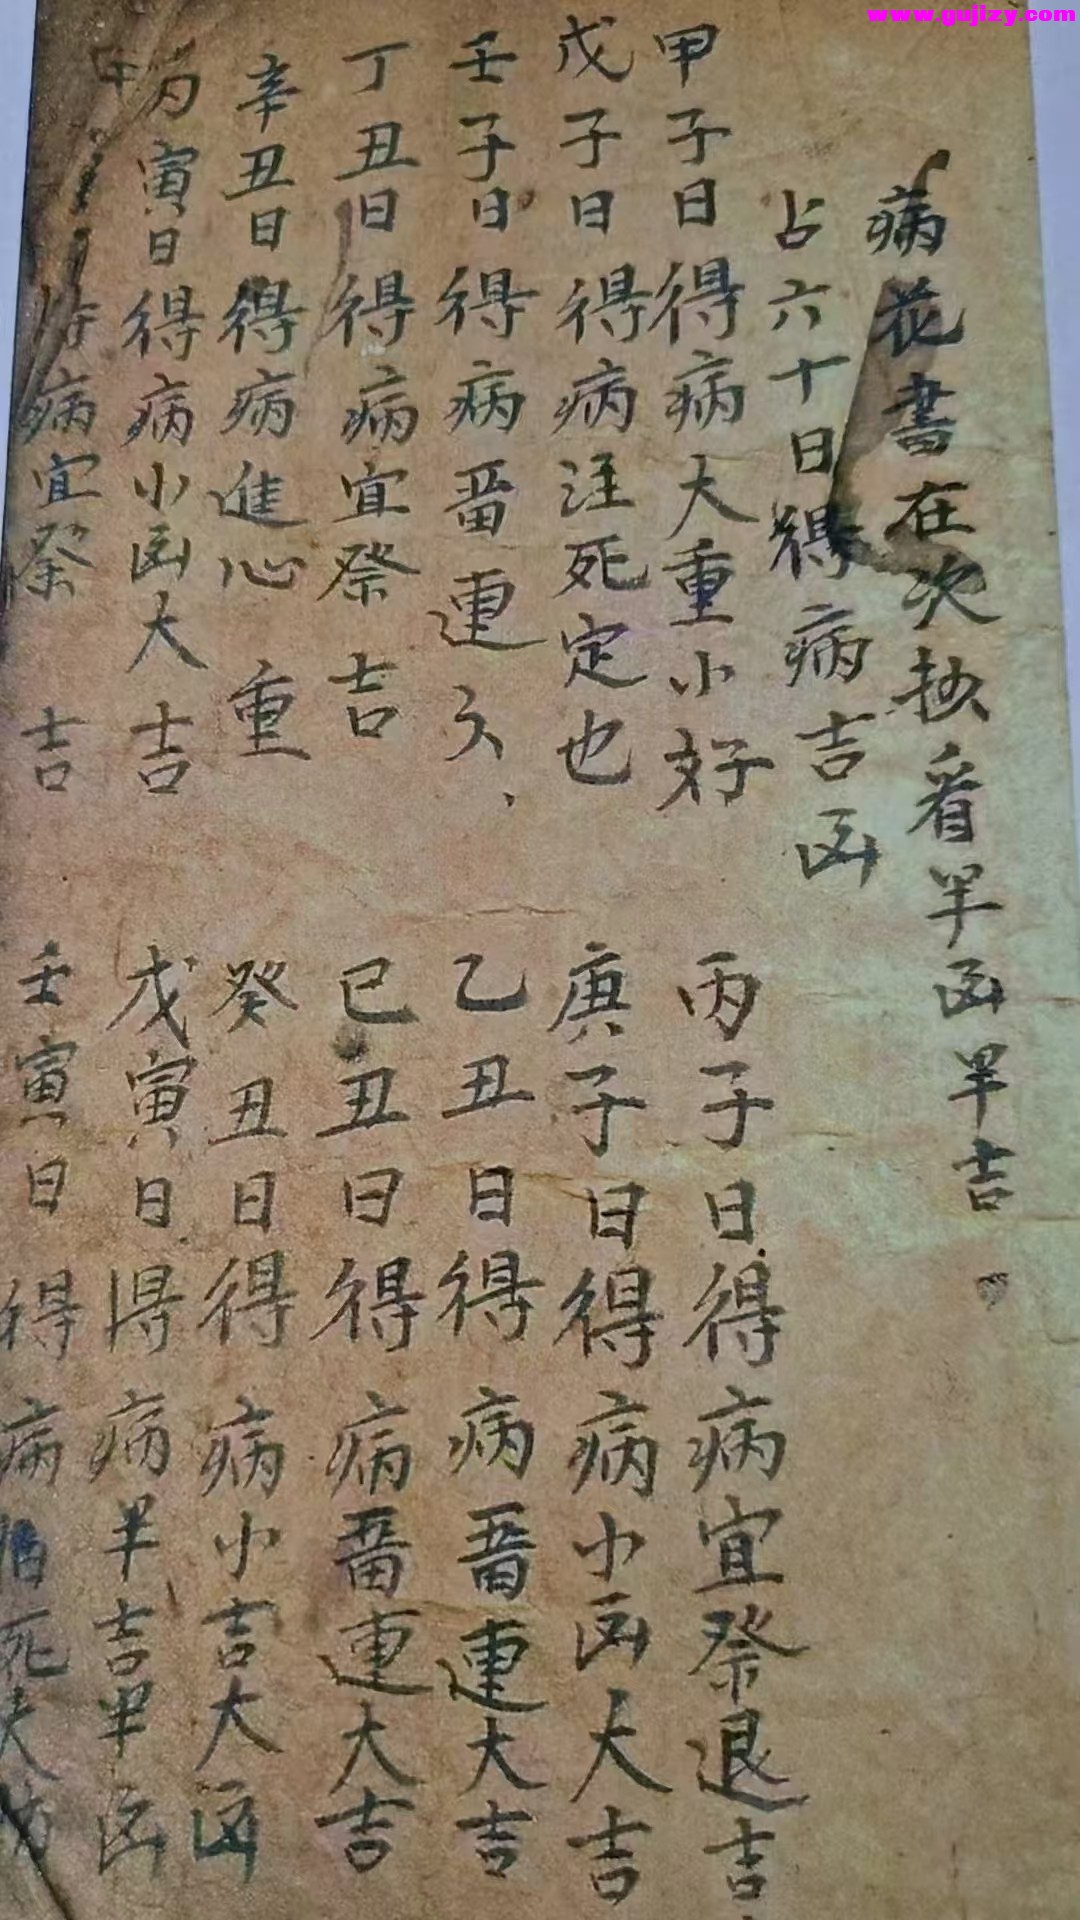 www.gujizy.com
病花書在次抄看半凶半吉
占六十日得病吉凶
甲子日得病大重小好
丙子日得病宜祭退吉
戊子日得病注死定也
庚子日得病小凶大吉
壬子日得病畨連久
乙丑日得病畨連大吉
丁丑日得病宜祭吉
己丑日得病畨連大吉
辛丑日得病進心重
癸丑日得病小吉大凶
丙寅日得病小凶大吉
戊寅日得病半吉半凶
病宜祭吉
壬寅日得病死